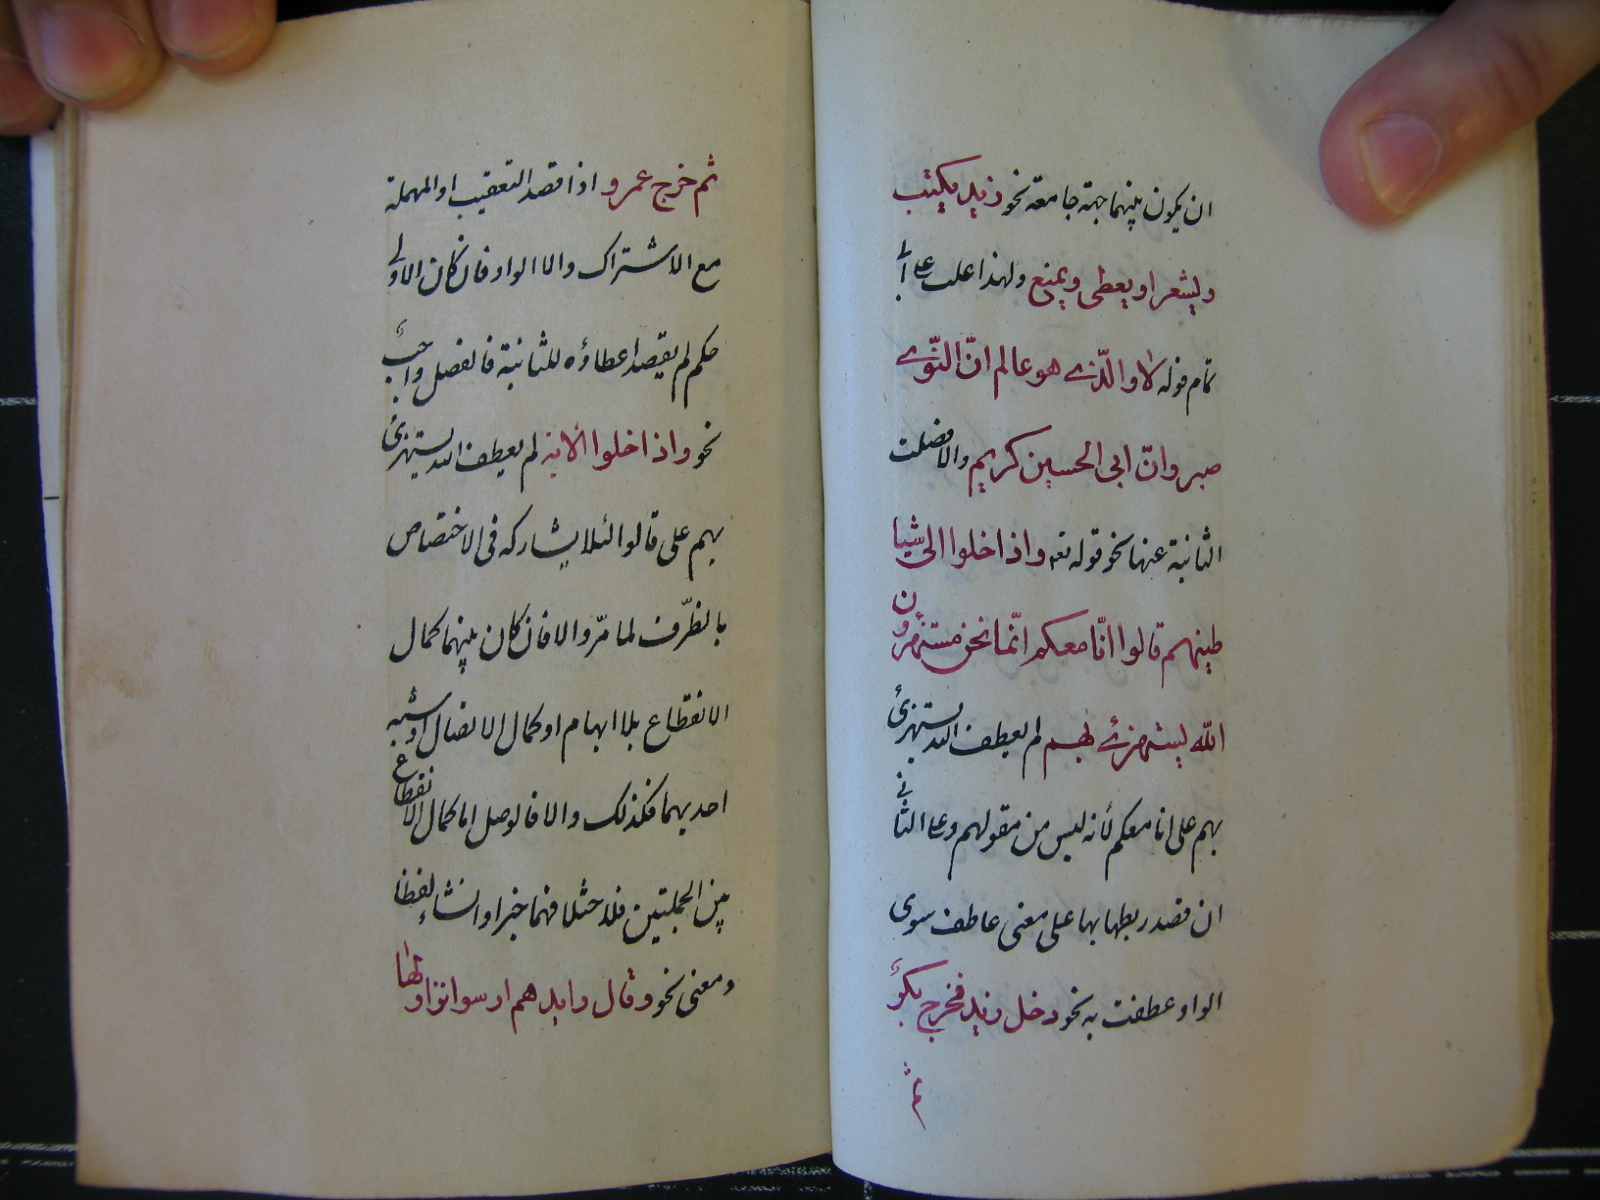 ان يكون بينهما جهة جامعة نحو زيد يكتب
ويشعر او يعطى ويمنع ولهذا عيب على ابى
تمام قوله لا والّذى هو عالم انّ النّوى
صبر وانّ ابى الحسين كريم والا فصلت
الثانية عنها نحو قوله تعه واذا خلوا الى شيا
طينهم قالوا انّا معكم انّما نحن مستهزؤن
اللّه يستهزئ بهم لم يعطف الله يستهزئ
بهم على انا معكم لأنه ليس من مقولهم وعلى الثانى
ان قصد ربطها بها على معنى عاطف سوى
الواو عطفت به نحو دخل زيد فخرج بكرٌ
ثم
ثم خرج عمرو اذا قصد التعقيب او المهملة
مع الاشتراك والا الواو فان كان الاولى
حكم لم يقصد اعطاؤه للثانية فالفصل واجبٌ
نحو واذا خلوا الاية لم يعطف الله يستهزئ
بهم على قالوا لئلا يشاركه فى الاختصاص
بالظّرف لما مرّ والا فان كان بينهما كمال
الانقطاع بلا ابهام او كمال الاتصال او شبه
احديهما فكذلك والا فالوصل اما كمال الانقطاع
بين الجملتين فلاختلافهما خبرا وانشاء لفظا
ومعنى نحو وقال رايدهم ارسوا نزاولها